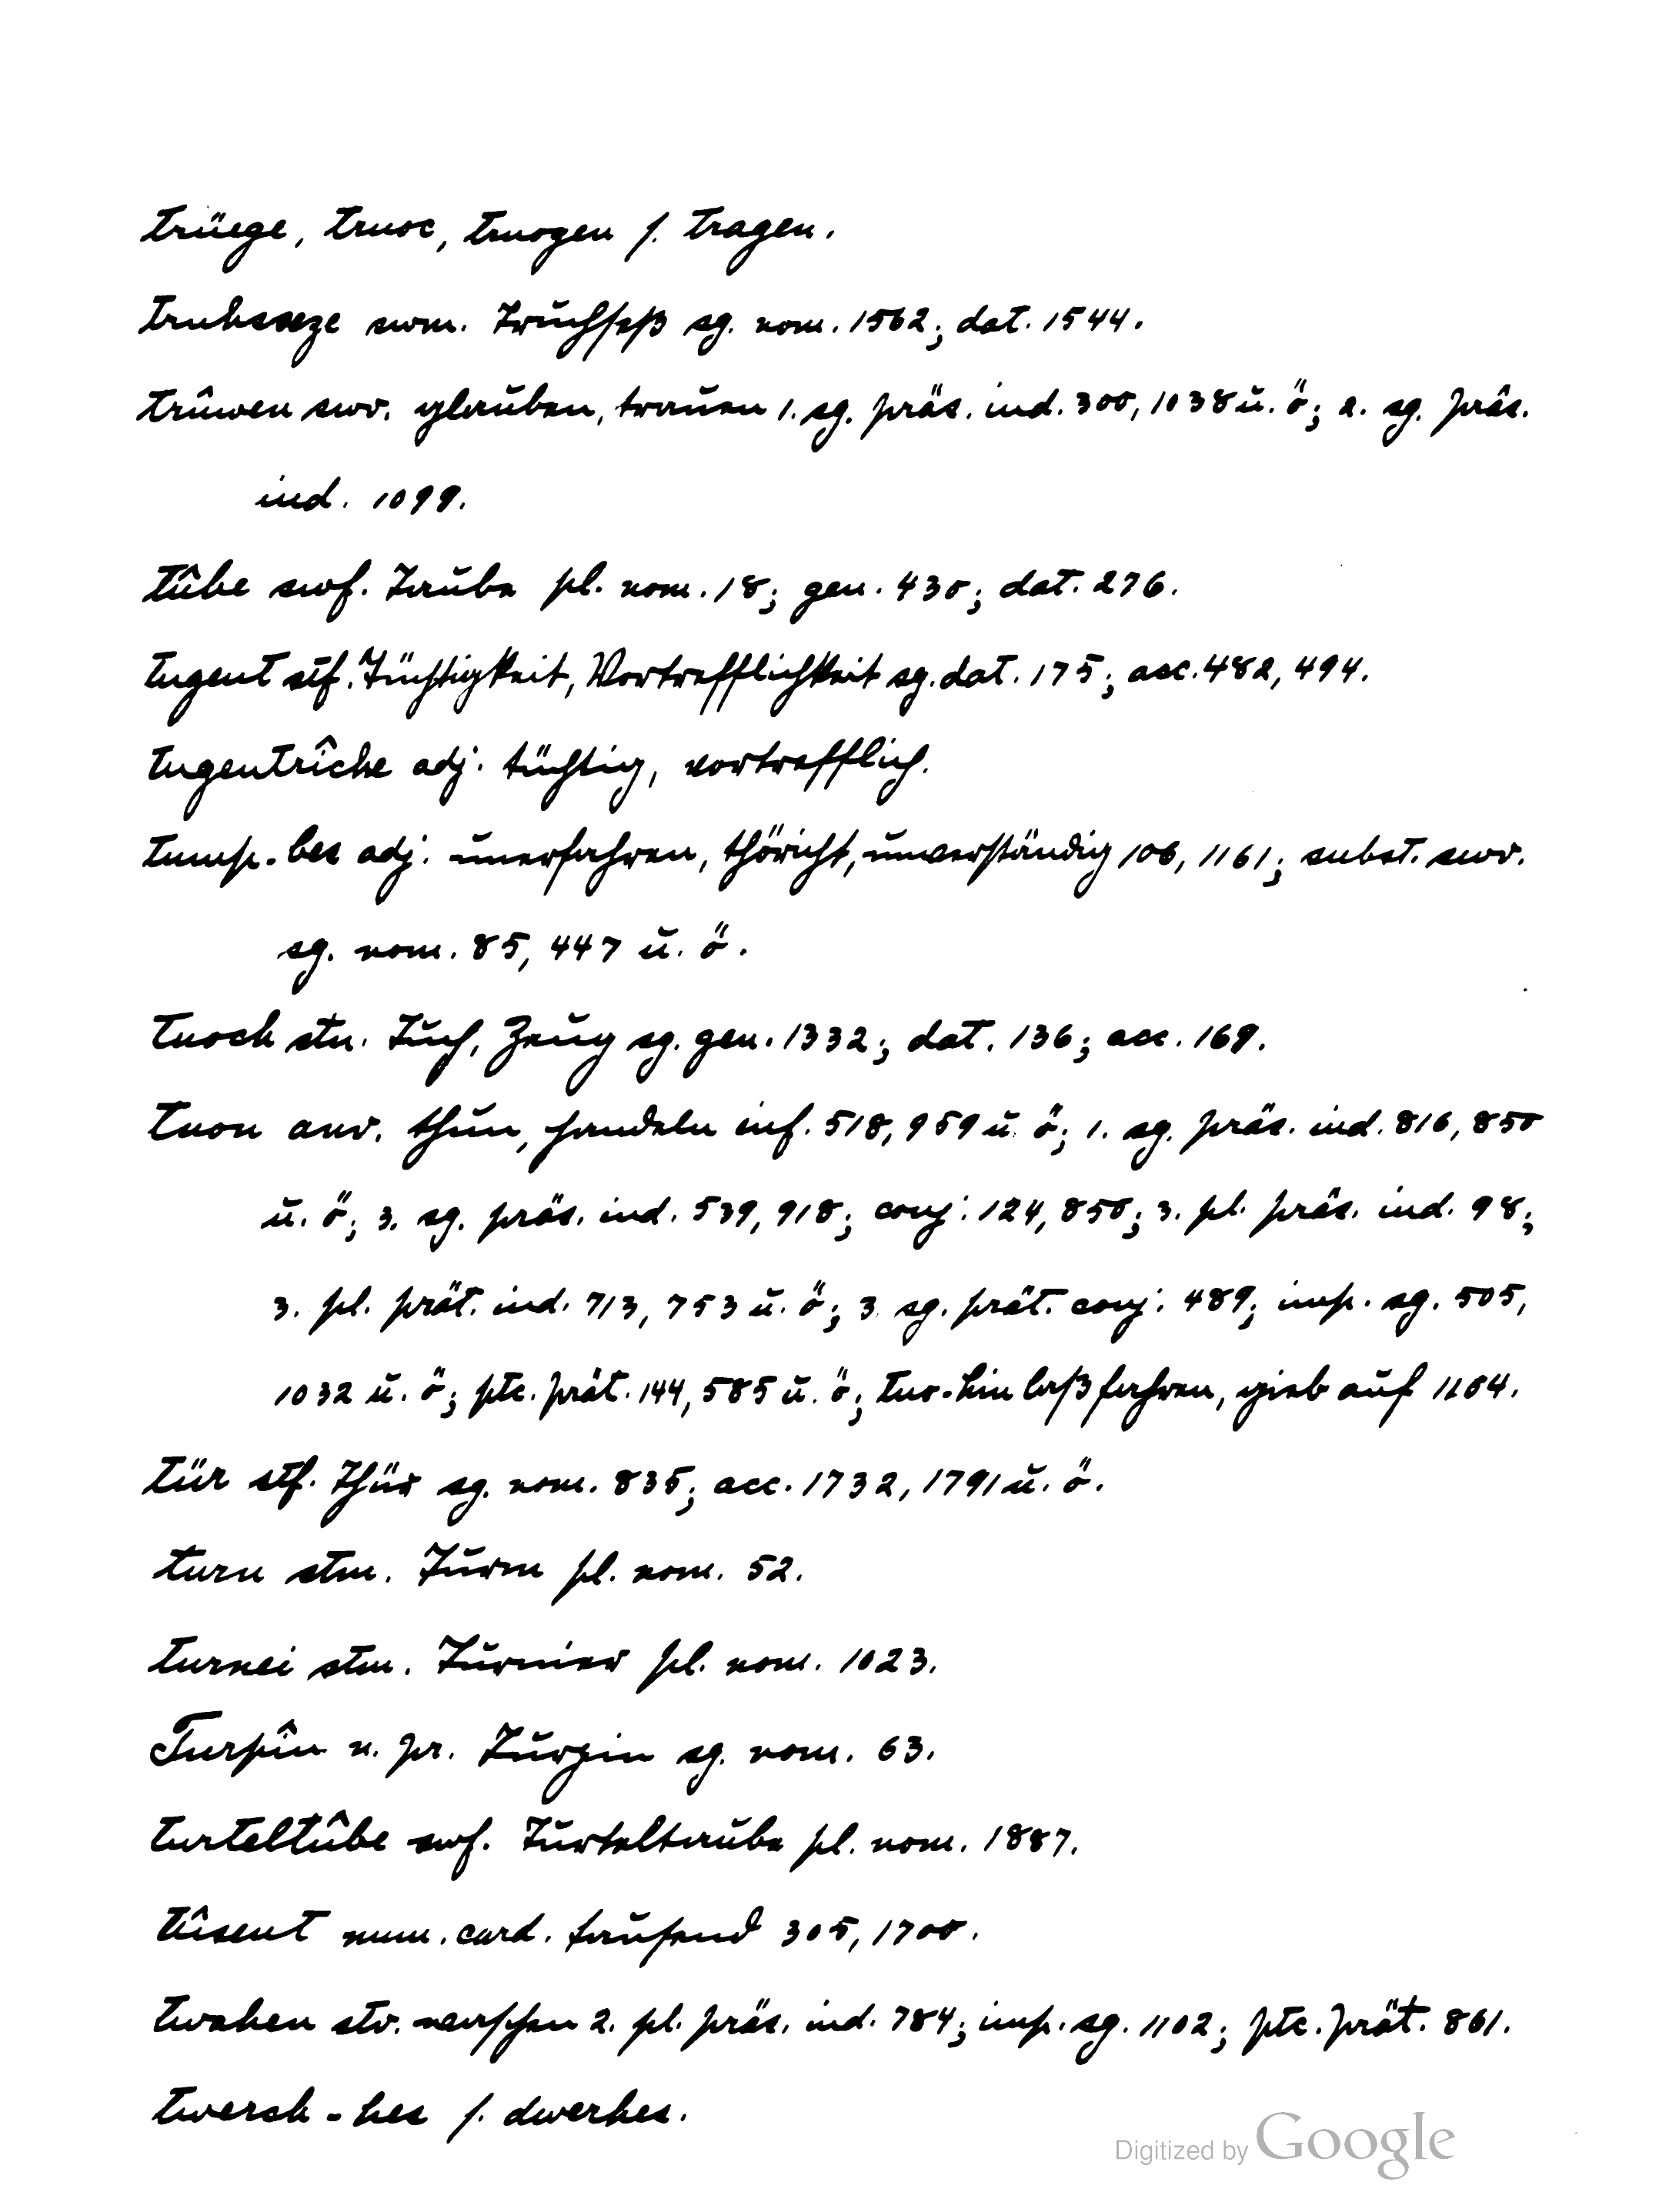 trüege, truoc, truogen s. tragen.
truhsæze swm. Truchseß sg. nom. 1562; dat. 1544.
trûwen swv. glauben, trauen 1. sg. präs. ind. 300, 1038 u. ö; 2. sg. präs.
ind. 1099.
tûbe swf. Taube pl. nom. 18; gen. 430; dat. 276.
tugent stf. Tüchtigkeit, Vortrefflichkeit sg. dat. 175; acc. 482, 494.
tugentrîche adj. tüchtig, vortrefflich.
tump-bes adj. unerfahren, thöricht, unverständig 106, 1161; subst. swv.
sg. nom. 85, 447 u. ö.
tuoch stn. Tuch, Zeug sg. gen. 1332; dat. 136; acc. 169.
tuon anv. thun, handeln inf. 518, 959 u. ö; 1. sg. präs. ind. 816, 850
u. ö; 3. sg. präs. ind. 539, 918; conj. 124, 850; 3. pl. präs. ind. 98;
3. pl. prät. ind. 713, 753 u. ö; 3 sg. prät. conj. 489; imp. sg. 505,
1032 u. ö; ptc. prät. 144, 585 u. ö; tuo-hin laß fahren, gieb auf 1164.
tür stf. Thür sg. nom. 835; acc. 1732, 1791 u. ö.
turn stm. Turm pl. nom. 52.
turnei stm. Turnier pl. nom. 1023.
Turpîn n. pr. Turpin sg. nom. 63.
turteltûbe swf. Turteltaube pl. nom. 1887.
tûsent num. card. tausend 305, 1700.
twahen stv. waschen 2. pl. präs. ind. 784; imp. sg. 1102; ptc. prät. 861.
twerch-hes s. dwerhes.
Digitized by Google